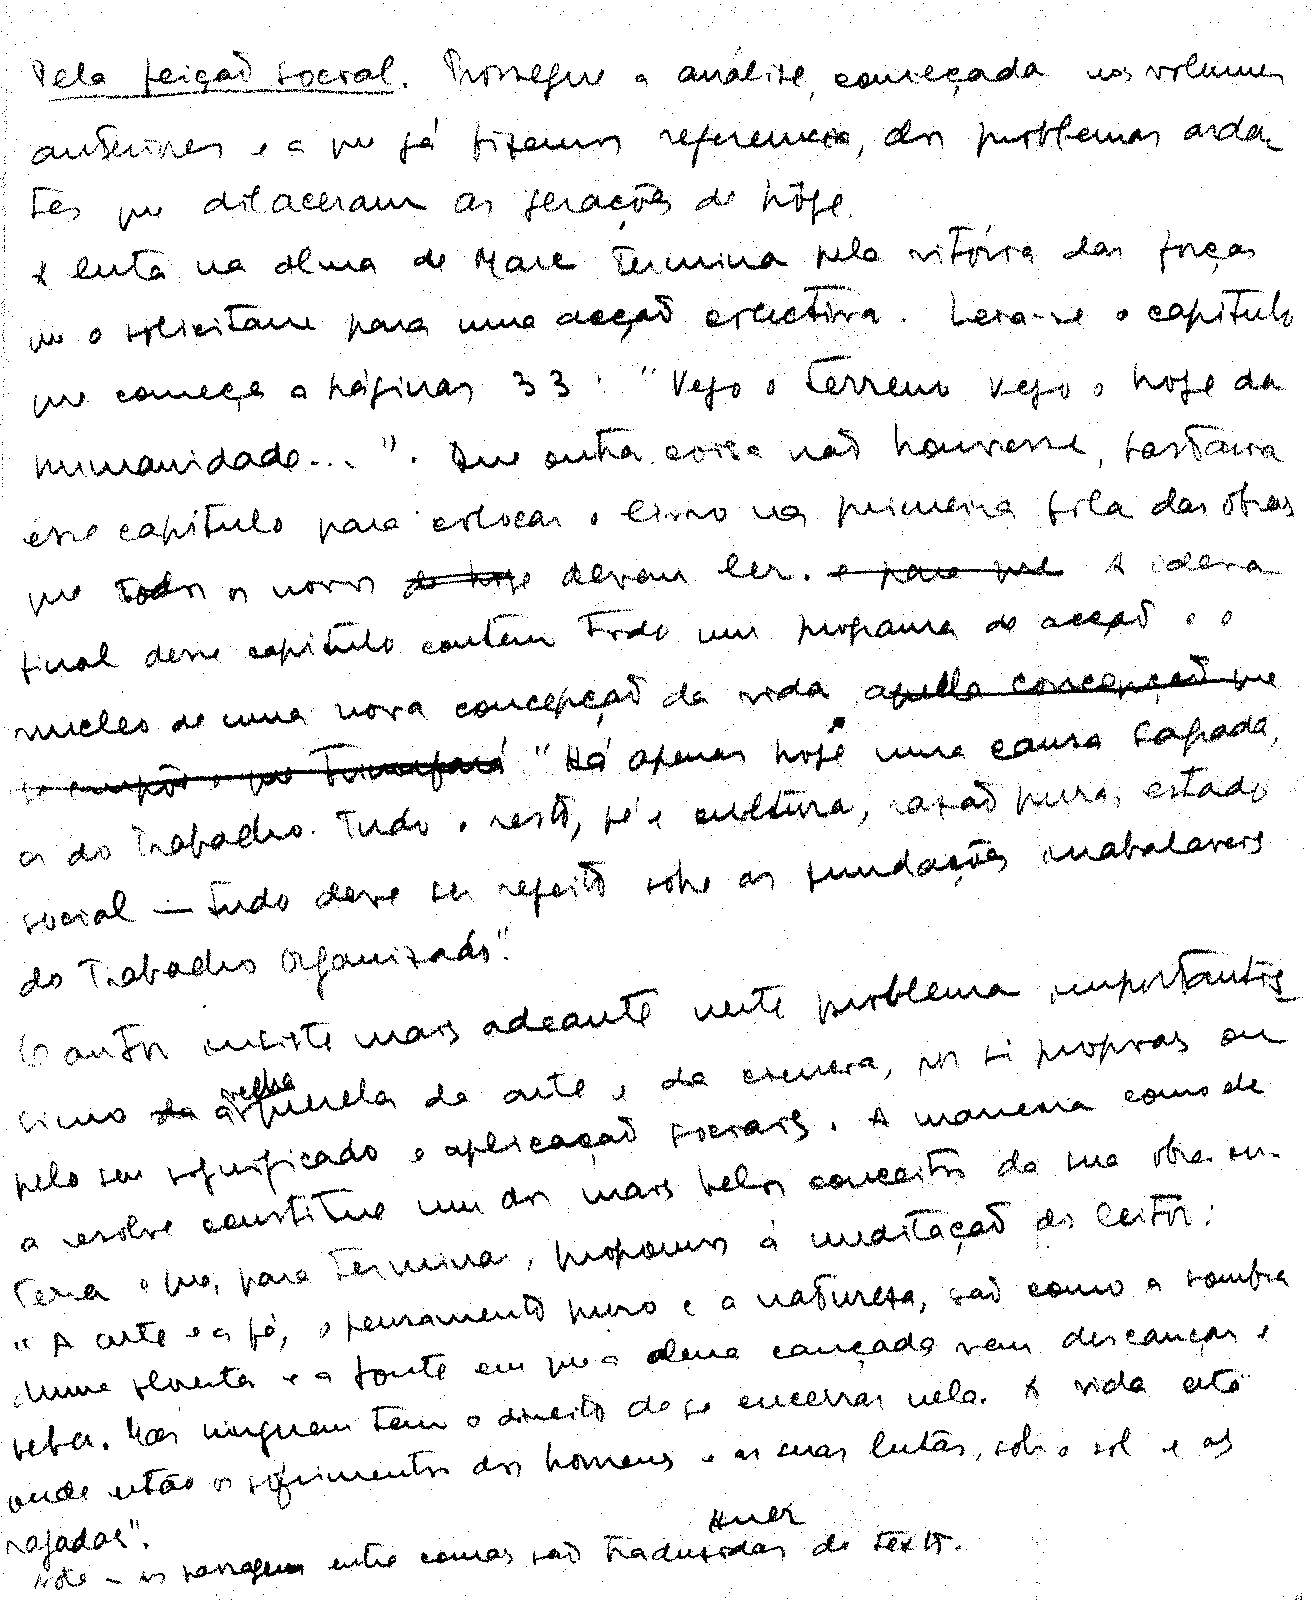 Pela feição social. Prossegue a análise, começada nos volumes
anteriores e a que já fizemos referencia, dos problemas arden-
tes que dilaceram as gerações de hoje.
A luta na alma de Marc termina pela vitória das forças
que o solicitam para uma acção colectiva. Leia-se o capítulo
que começa a páginas 33: "Vejo o terreno vejo o hoje da
humanidade...". Que outra coisa não houvesse, bastaria
esse capítulo para colocar o livro na primeira fila das obras
que todos os novos de hoje devem ler. e para que A ideia
final desse capítulo contem todo um programa de acção e o
nucleo de uma nova concepção da vida aquella concepção que
se impõe e que triunfará "Há apenas hoje uma causa sagrada,
a do Trabalho. Tudo o resto, fé e cultura, razão pura, estado
social — tudo deve ser refeito sobre as fundações inabalaveis
do Trabalho Organizado".
O autor insiste mais adeante neste problema importantis-
simo da velha querela da arte e da ciencia, por si proprias ou
pelo seu significado e aplicação sociais. A maneira como de
a resolve constitue um dos mais belos conceitos da sua obra in-
teira e que, para terminar, propomos á meditação do leitor:
"A arte e a fé, o pensamento puro e a natureza, são como a sombra
duma floresta e a fonte em que a alma cançada vem descançar e
beber. Mas ninguem tem o direito de se encerrar nela. A vida está
onde estão os sofrimentos dos homens e as suas lutas, sob o sol e as
rajadas".
Nota - as passagens entre comas são traduzidas do texto.